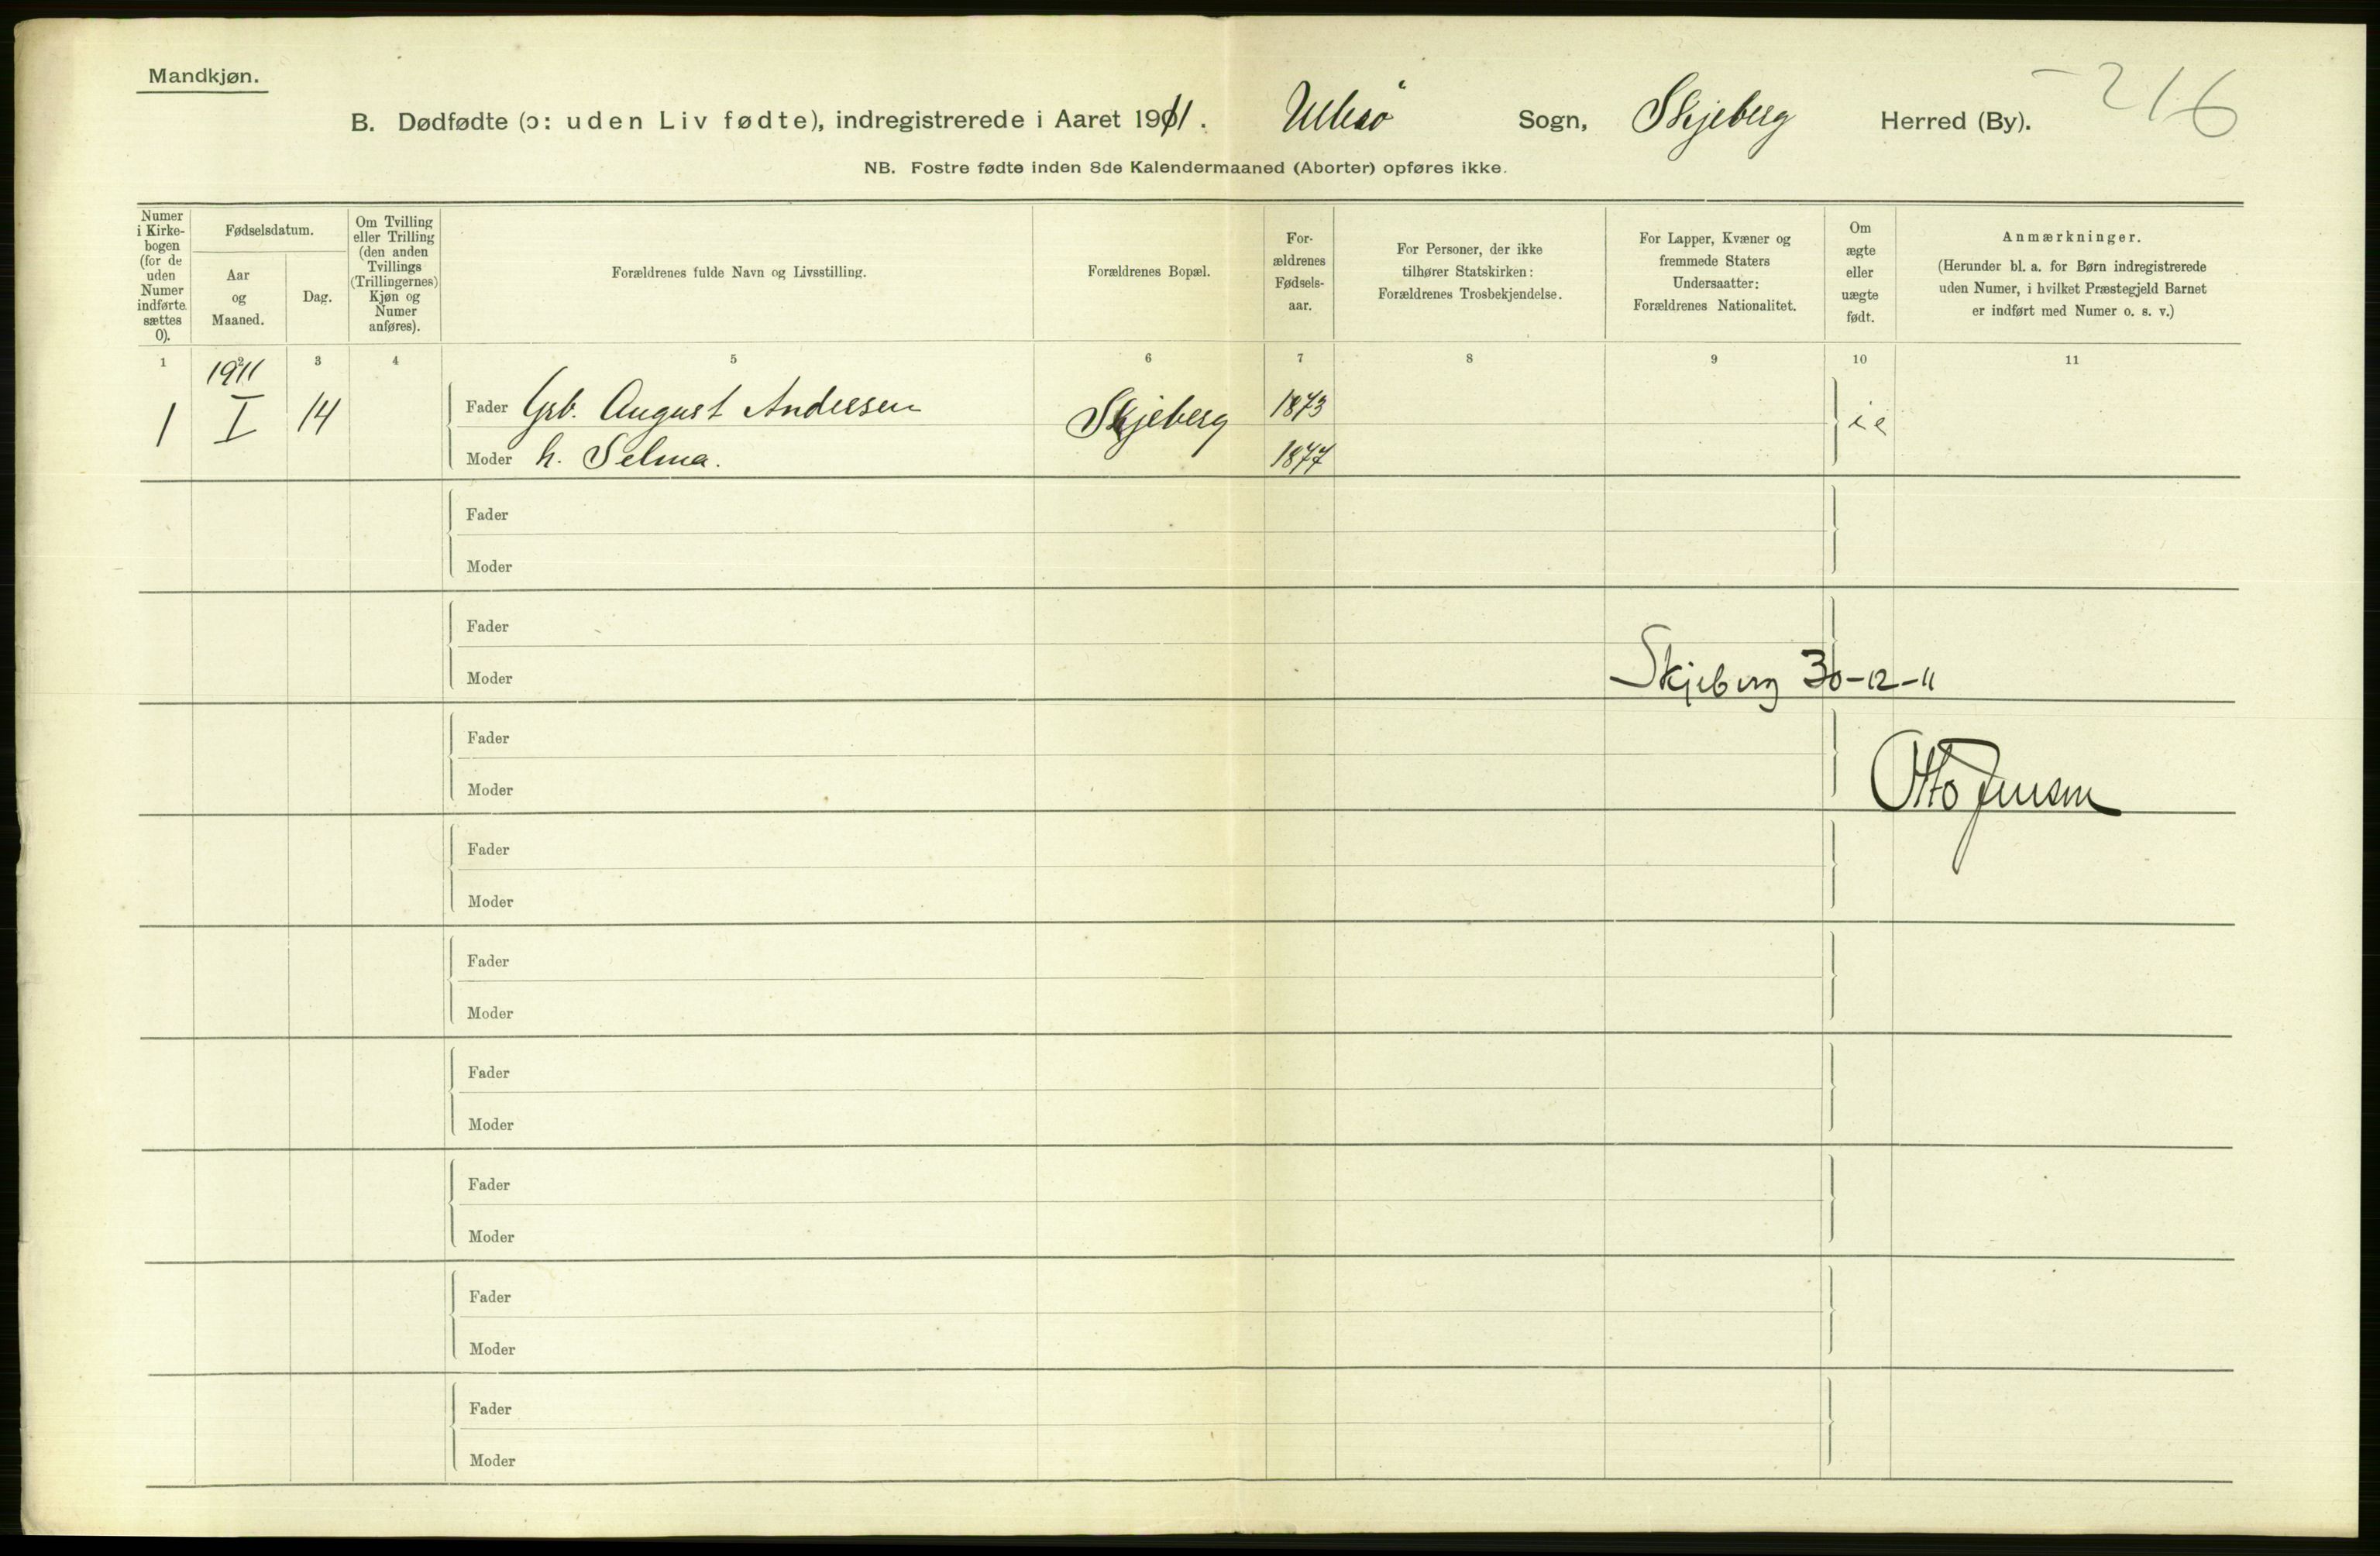 Mandkjøn.
216
B. Dødfødte (ɔ: uden Liv fødte), indregistrerede i Aaret 1911. Ullerø Sogn, Skjeberg Herred (By).
NB. Fostre fødte inden 8de Kalendermaaned (Aborter) opføres ikke.
Numer i Kirke-bogen (for de uden Numer indførte sættes 0).
Fødselsdatum.
Aar og Maaned.
Dag.
Om Tvilling eller Trilling (den anden Tvillings (Trillingernes) Kjøn og Numer anføres).
Forældrenes fulde Navn og Livsstilling.
Forældrenes Bopæl.
For-ældrenes Fødsels-aar.
For Personer, der ikke tilhører Statskirken: Forældrenes Trosbekjendelse.
For Lapper, Kvæner og fremmede Staters Undersaatter: Forældrenes Nationalitet.
Om ægte eller uægte født.
Anmærkninger.
(Herunder bl. a. for Børn indregistrerede uden Numer, i hvilket Præstegjeld Barnet er indført med Numer o. s. v.)
1 2 3 4 5 6 7 8 9 10 11
1911
1 I 14 Fader Grb. August Andersen Skjeberg 1873
Moder h. Selma. 1877
Fader
Moder
Fader
Moder
Skjeberg 30-12-11
Fader
Moder
Otto Jensen
Fader
Moder
Fader
Moder
Fader
Moder
Fader
Moder
Fader
Moder
Fader
Moder